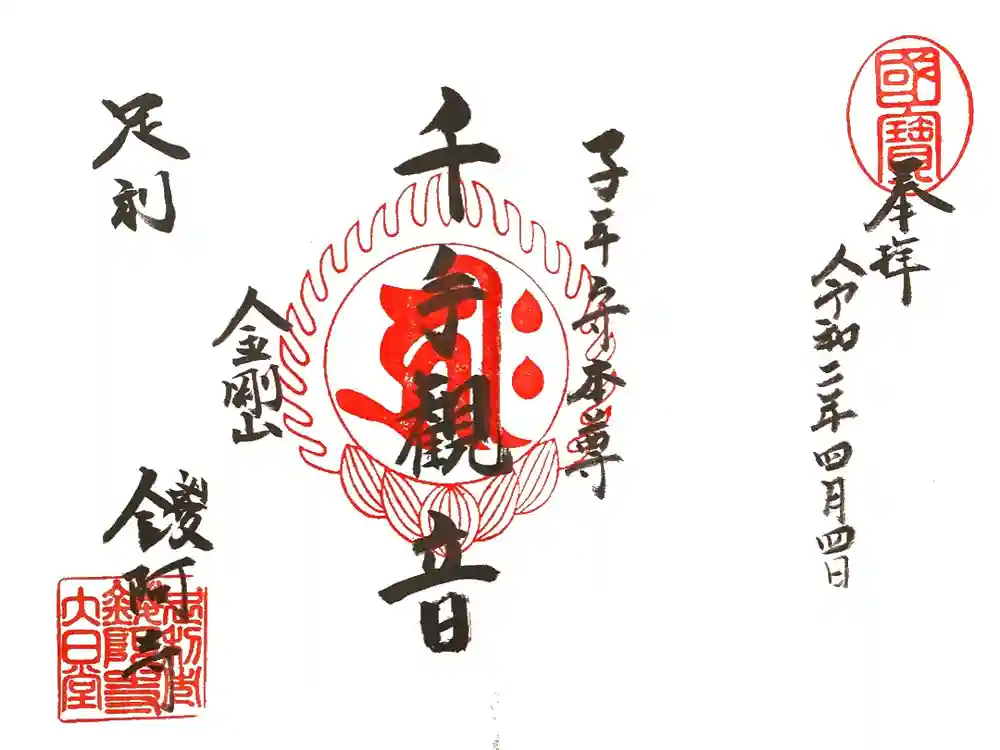 國寶
奉拝
令和二年四月四日
子年守本尊
千手觀音
金剛山
足利
鑁阿寺
足利市
鑁阿寺
大日堂